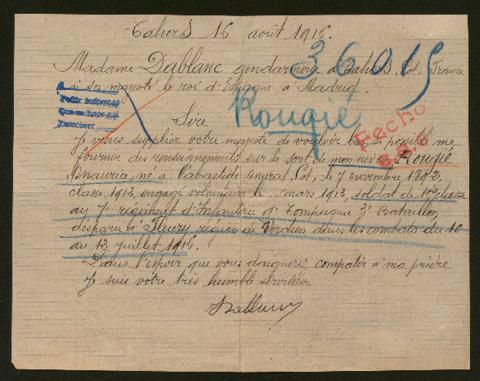 Cahors 16 août 1916.
36015
Madame Dablanc gendarmerie à Cahors, Lot, France
à sa majesté le roi d'Espagne à Madrid.
Pedir informes
Sire
Rougié
Hecho
Je viens supplier votre majesté de vouloir bien si possible me
fournir des renseignements sur le sort de mon neveu Rougié
Maurice, né à Labastide Lot, le 7 novembre 1893,
classe 1913, engagé volontaire le mars 1913, soldat de 1re classe
au 7e régiment d'Infanterie 9e Compagnie 3e Bataillon
disparu à Fleury région de Verdun dans les combats du 10
au 12 juillet 1916.
Dans l'espoir que vous daignerez compatir à ma prière
Je suis votre très humble serviteur